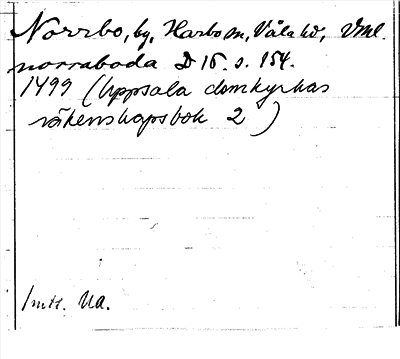 Norrbo, by, Harbo sn, Våla hd, Vml.
norraboda D 15. s. 154.
1499 (Uppsala domkyrkas
räkenskapsbok 2)
Intr. UA.